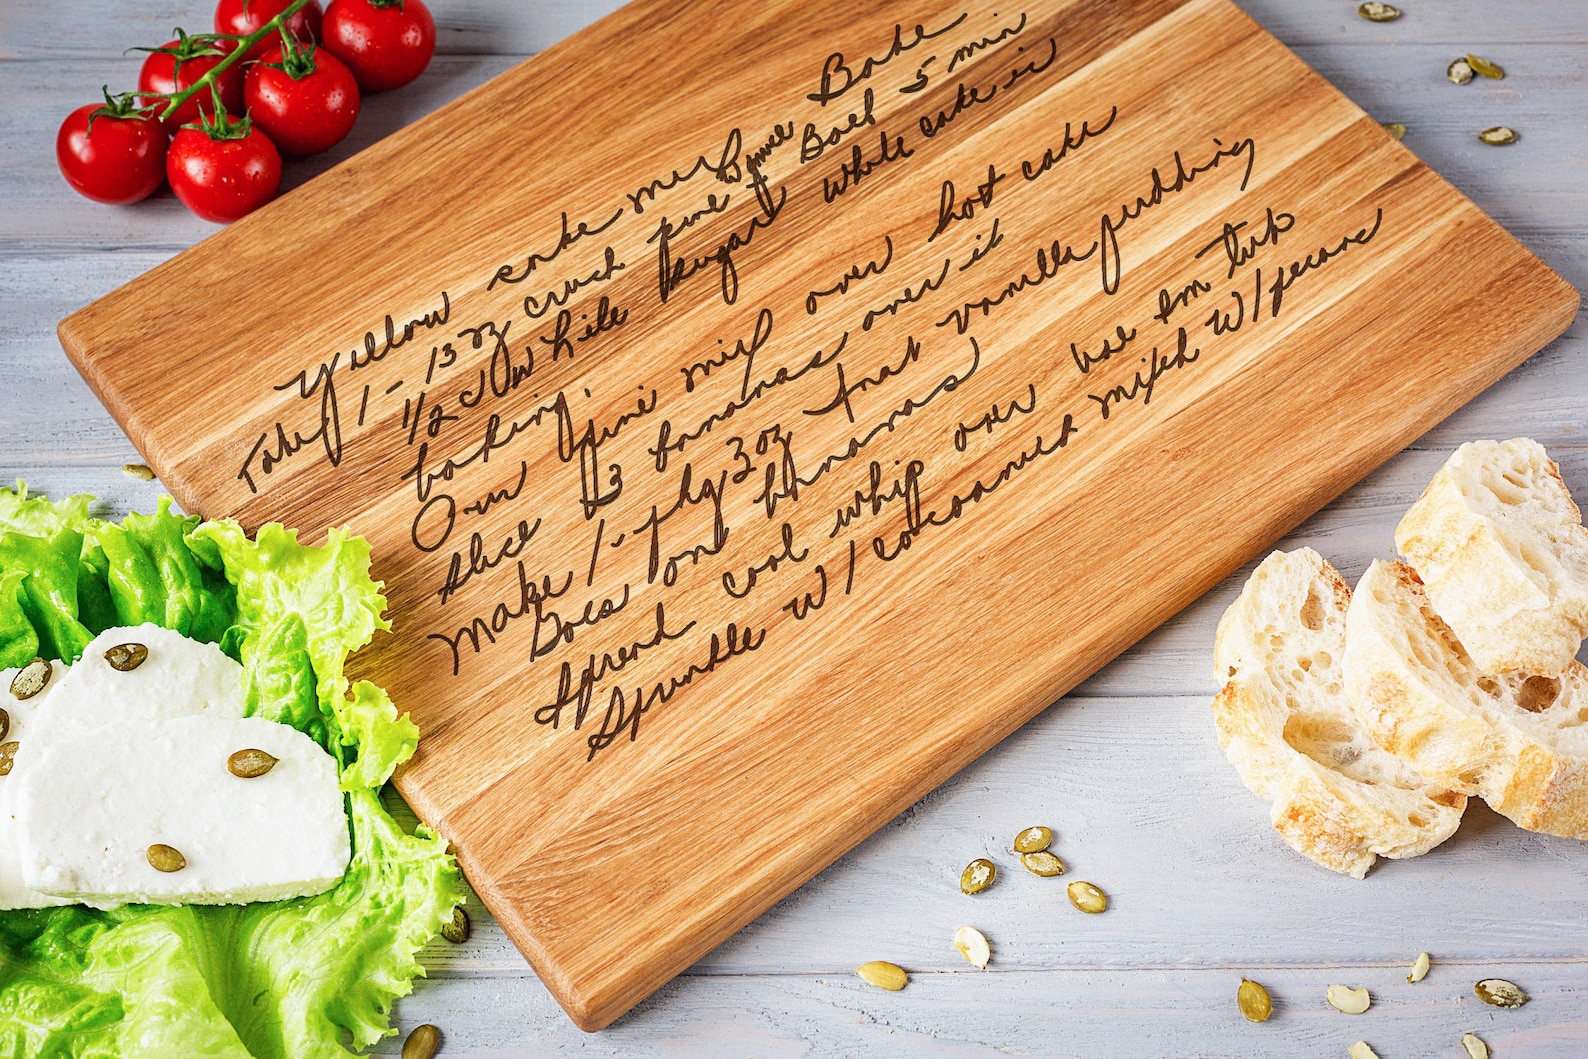 Yellow cake mix Bake
Take 1 - 13 oz crush pine Boil 5 min
1/2 c white sugar while cake is
baking.
Our pine mix over hot cake
slice 3 bananas over it
Make 1 - pkg 3 oz inst vanilla pudding
Goes on bananas
Spread cool whip over use sm tub
Sprinkle w/ cocoanut mixed w/ pecans